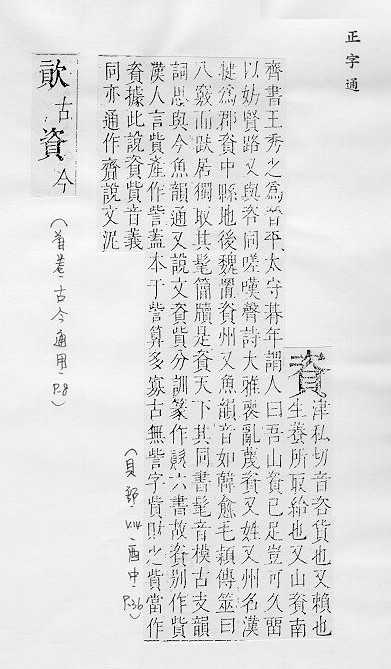 正字通
資
津私切音咨貨也又賴也
生養所取給也又山資南
齊書王秀之為晉平太守朞年謂人曰吾山資已足豈可久留
以妨賢路又與咨同嗟嘆聲詩大雅喪亂蔑資又姓又州名漢
犍為郡資中縣地後魏置資州又魚韻音如韓愈毛穎傳筮曰
八竅而趺居獨取其髦簡牘是資天下其同書髦音模古支韻
詞思與今魚韻通又說文資貲分訓篆作六書故資別作貲
漢人言貲產作訾蓋本于訾算多寡古無訾字貲財之貲當作
資據此說資貲音義
同亦通作齎說文泥
(貝部、V.14、酉中、P.36)
古資今
(首卷、古今通用、P.8)